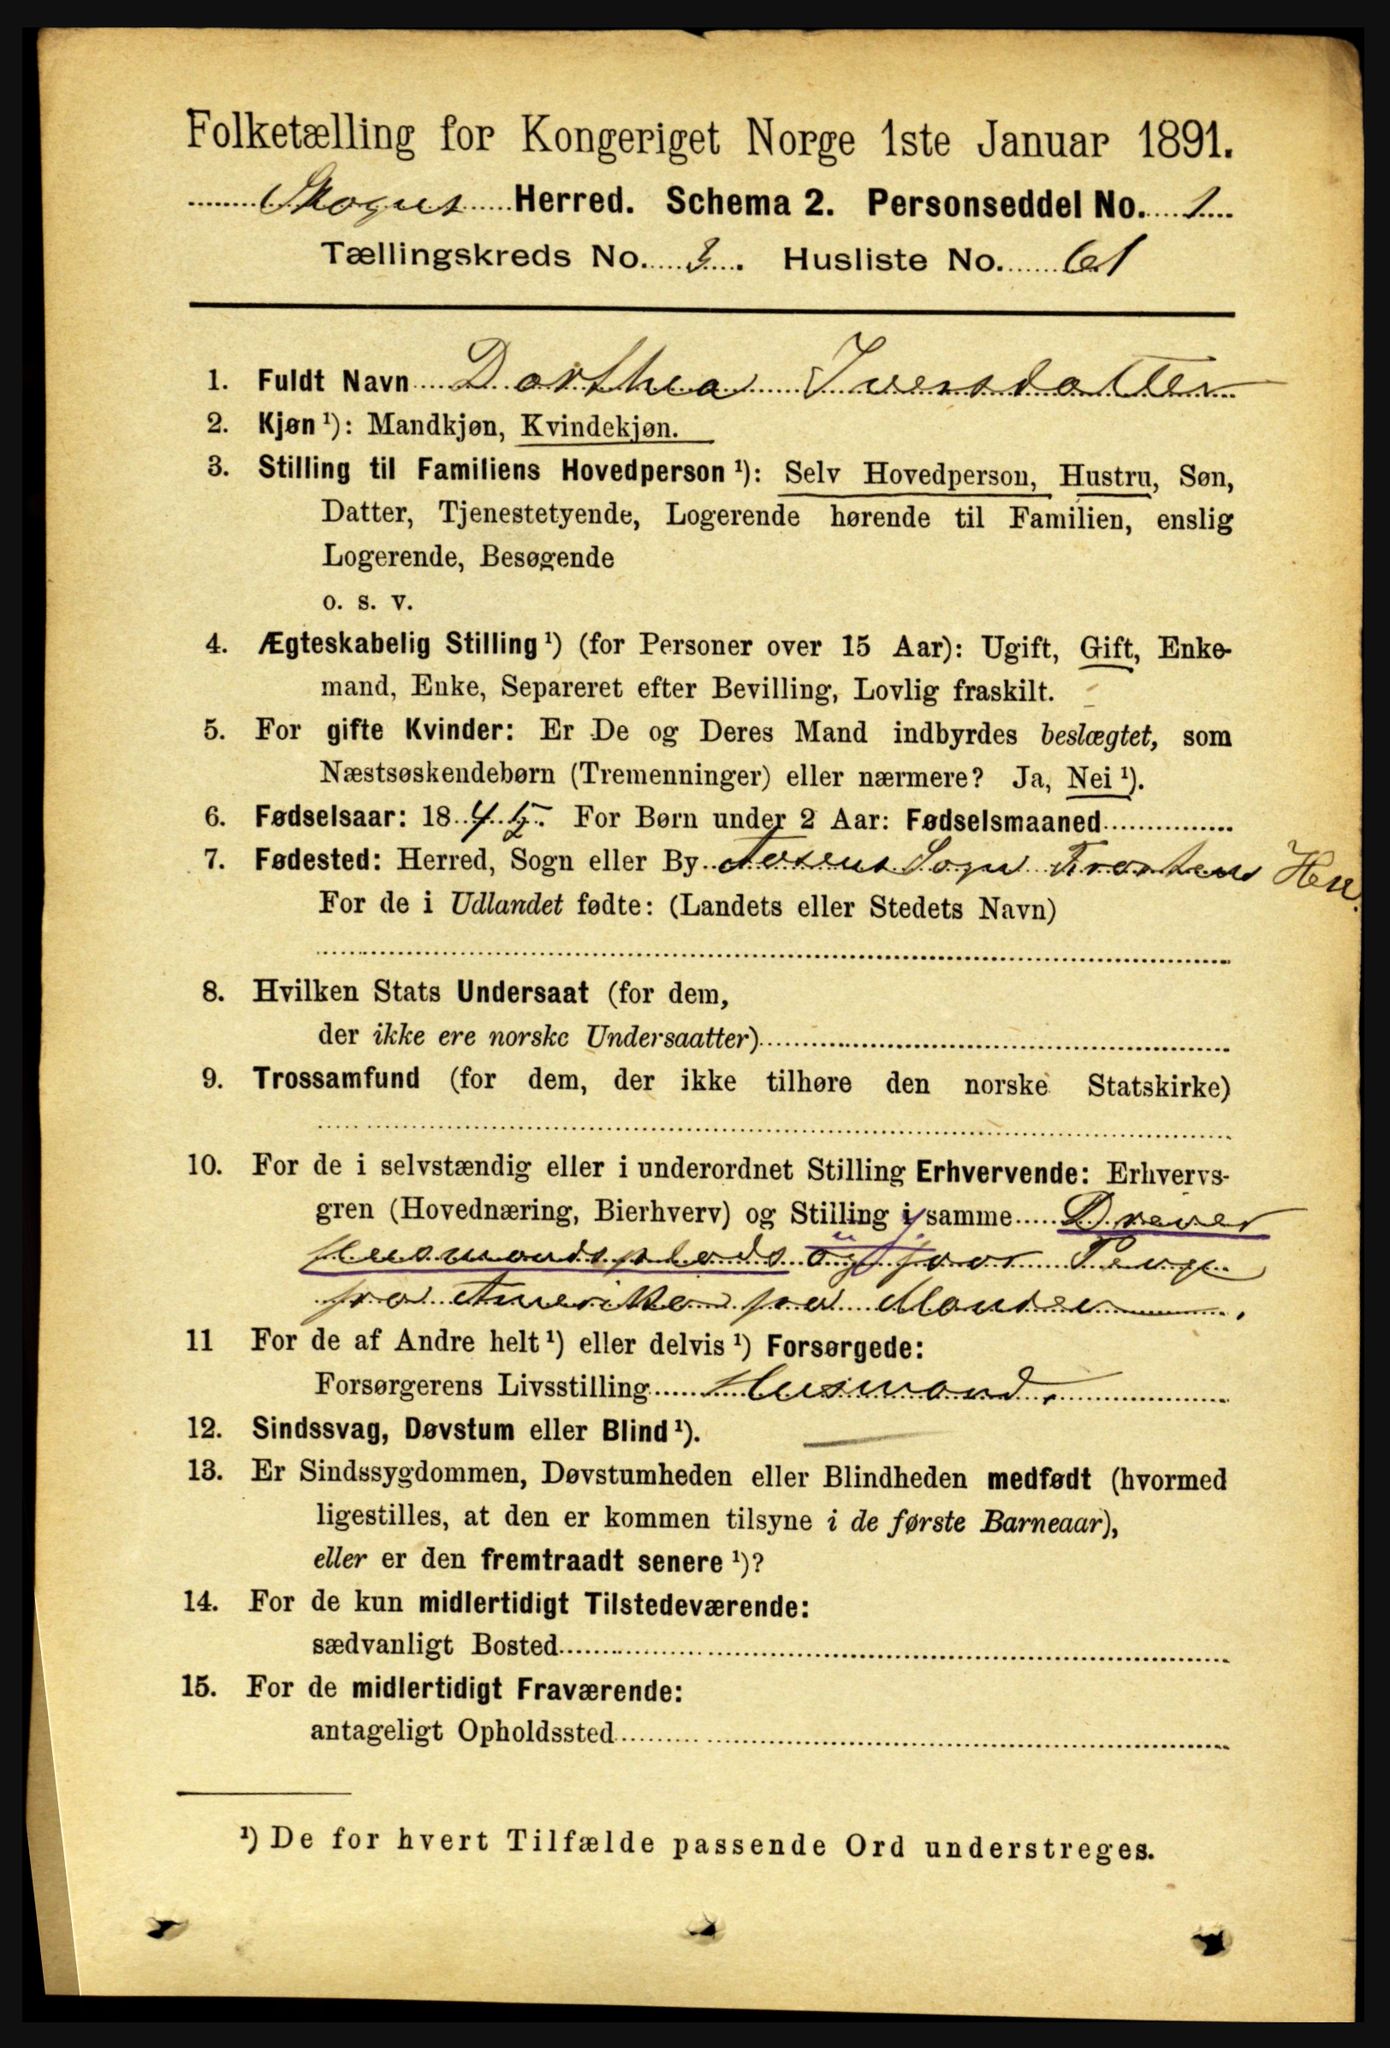 Folketælling for Kongeriget Norge 1ste Januar 1891.
Skogns Herred. Schema 2. Personseddel No. 1
Tællingskreds No. 3. Husliste No. 61
1. Fuldt Navn Dorthea Iversdatter
2. Kjøn ¹): Mandkjøn, Kvindekjøn.
3. Stilling til Familiens Hovedperson ¹): Selv Hovedperson, Hustru, Søn,
Datter, Tjenestetyende, Logerende hørende til Familien, enslig
Logerende, Besøgende
o. s. v.
4. Ægteskabelig Stilling ¹) (for Personer over 15 Aar): Ugift, Gift, Enke-
mand, Enke, Separeret efter Bevilling, Lovlig fraskilt.
5. For gifte Kvinder: Er De og Deres Mand indbyrdes beslægtet, som
Næstsøskendebørn (Tremenninger) eller nærmere? Ja, Nei ¹).
6. Fødselsaar: 1845. For Børn under 2 Aar: Fødselsmaaned
7. Fødested: Herred, Sogn eller By Aasens Sogn Frostens Her.
For de i Udlandet fødte: (Landets eller Stedets Navn)
8. Hvilken Stats Undersaat (for dem,
der ikke ere norske Undersaatter)
9. Trossamfund (for dem, der ikke tilhøre den norske Statskirke)
10. For de i selvstændig eller i underordnet Stilling Erhvervende: Erhvervs-
gren (Hovednæring, Bierhverv) og Stilling i samme Driver
Husmandsplads og faar Penge
fra Amerika fra Manden.
11 For de af Andre helt ¹) eller delvis ¹) Forsørgede:
Forsørgerens Livsstilling Husmand.
12. Sindssvag, Døvstum eller Blind ¹).
13. Er Sindssygdommen, Døvstumheden eller Blindheden medfødt (hvormed
ligestilles, at den er kommen tilsyne i de første Barneaar),
eller er den fremtraadt senere ¹)?
14. For de kun midlertidigt Tilstedeværende:
sædvanligt Bosted
15. For de midlertidigt Fraværende:
antageligt Opholdssted
¹) De for hvert Tilfælde passende Ord understreges.